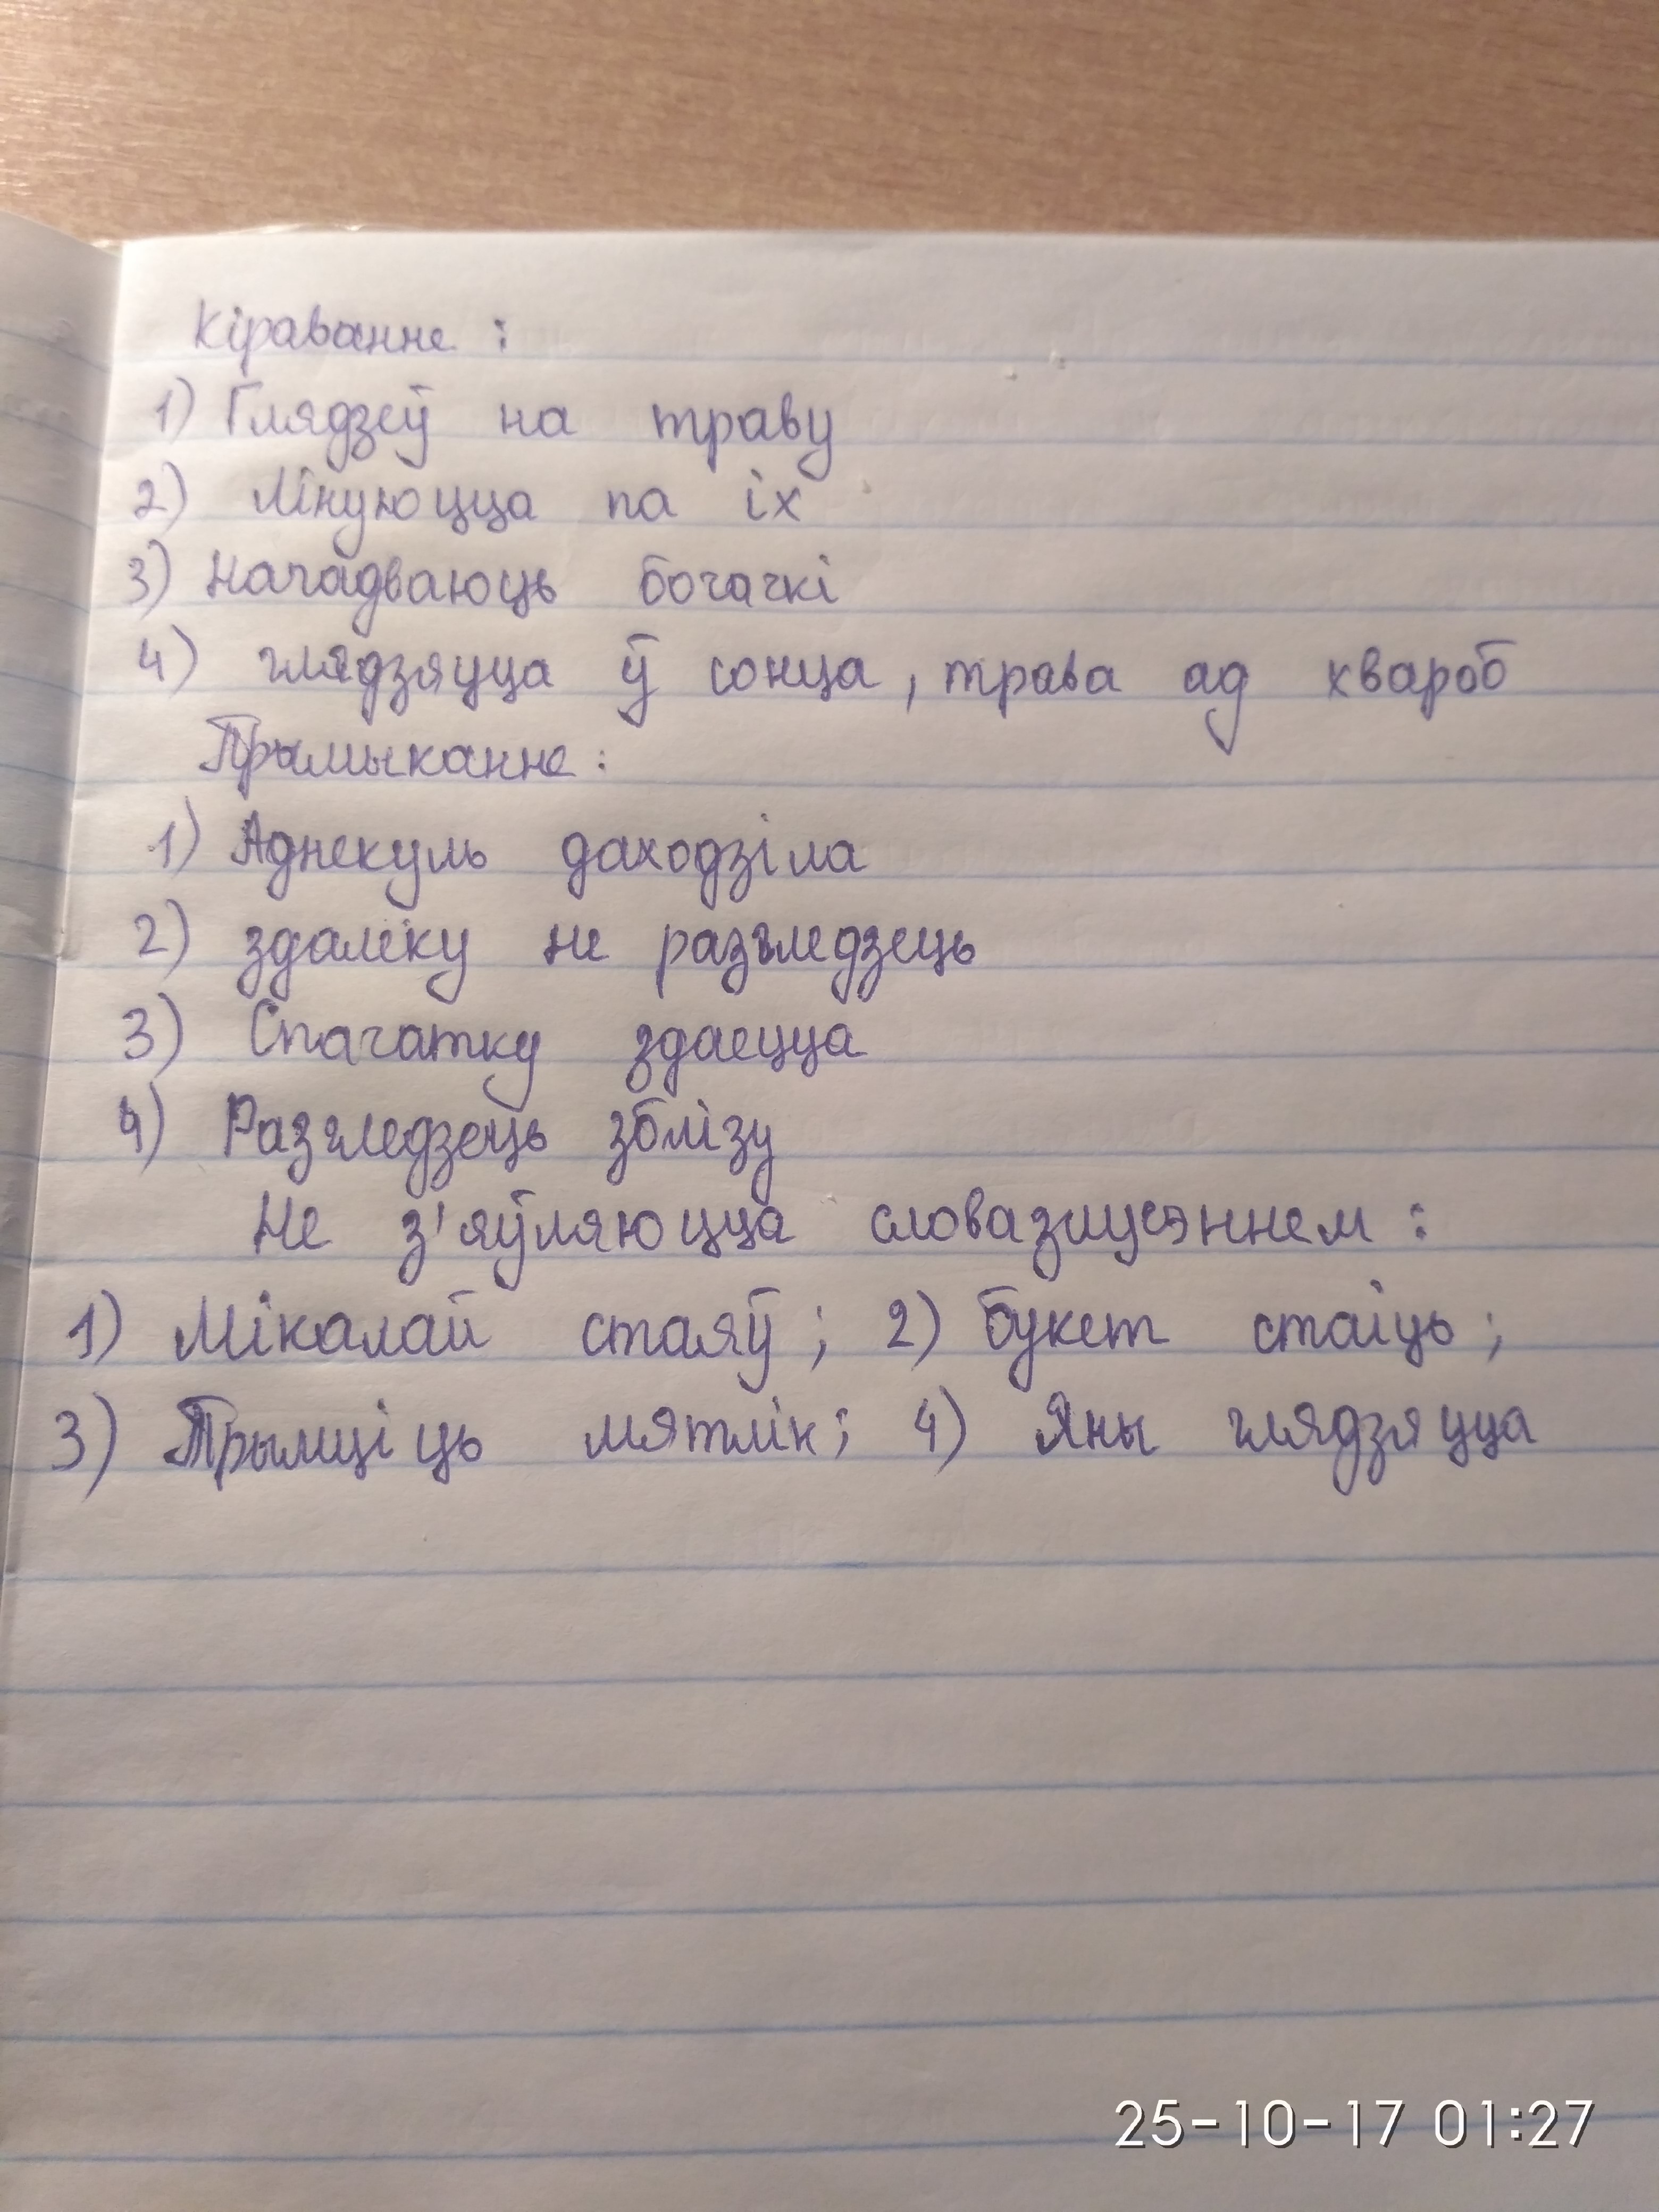 Кіраванне :
1) Глядзеў на траву
2) Лінуюцца па іх
3) Нагадваюць богачкі
4) глядзяцца ў сонца, трава ад хвароб
Прымыканне :
1) Аднекуль даходзіла
2) здалёку не разгледзець
3) Спачатку здаецца
4) Разгледзець зблізу
Не з'яўляюцца словазлучэннем :
1) Мікалай стаяў ; 2) букет стаіць ;
3) Трымціць мятлік ; 4) Яны глядзяцца
25-10-17 01:27